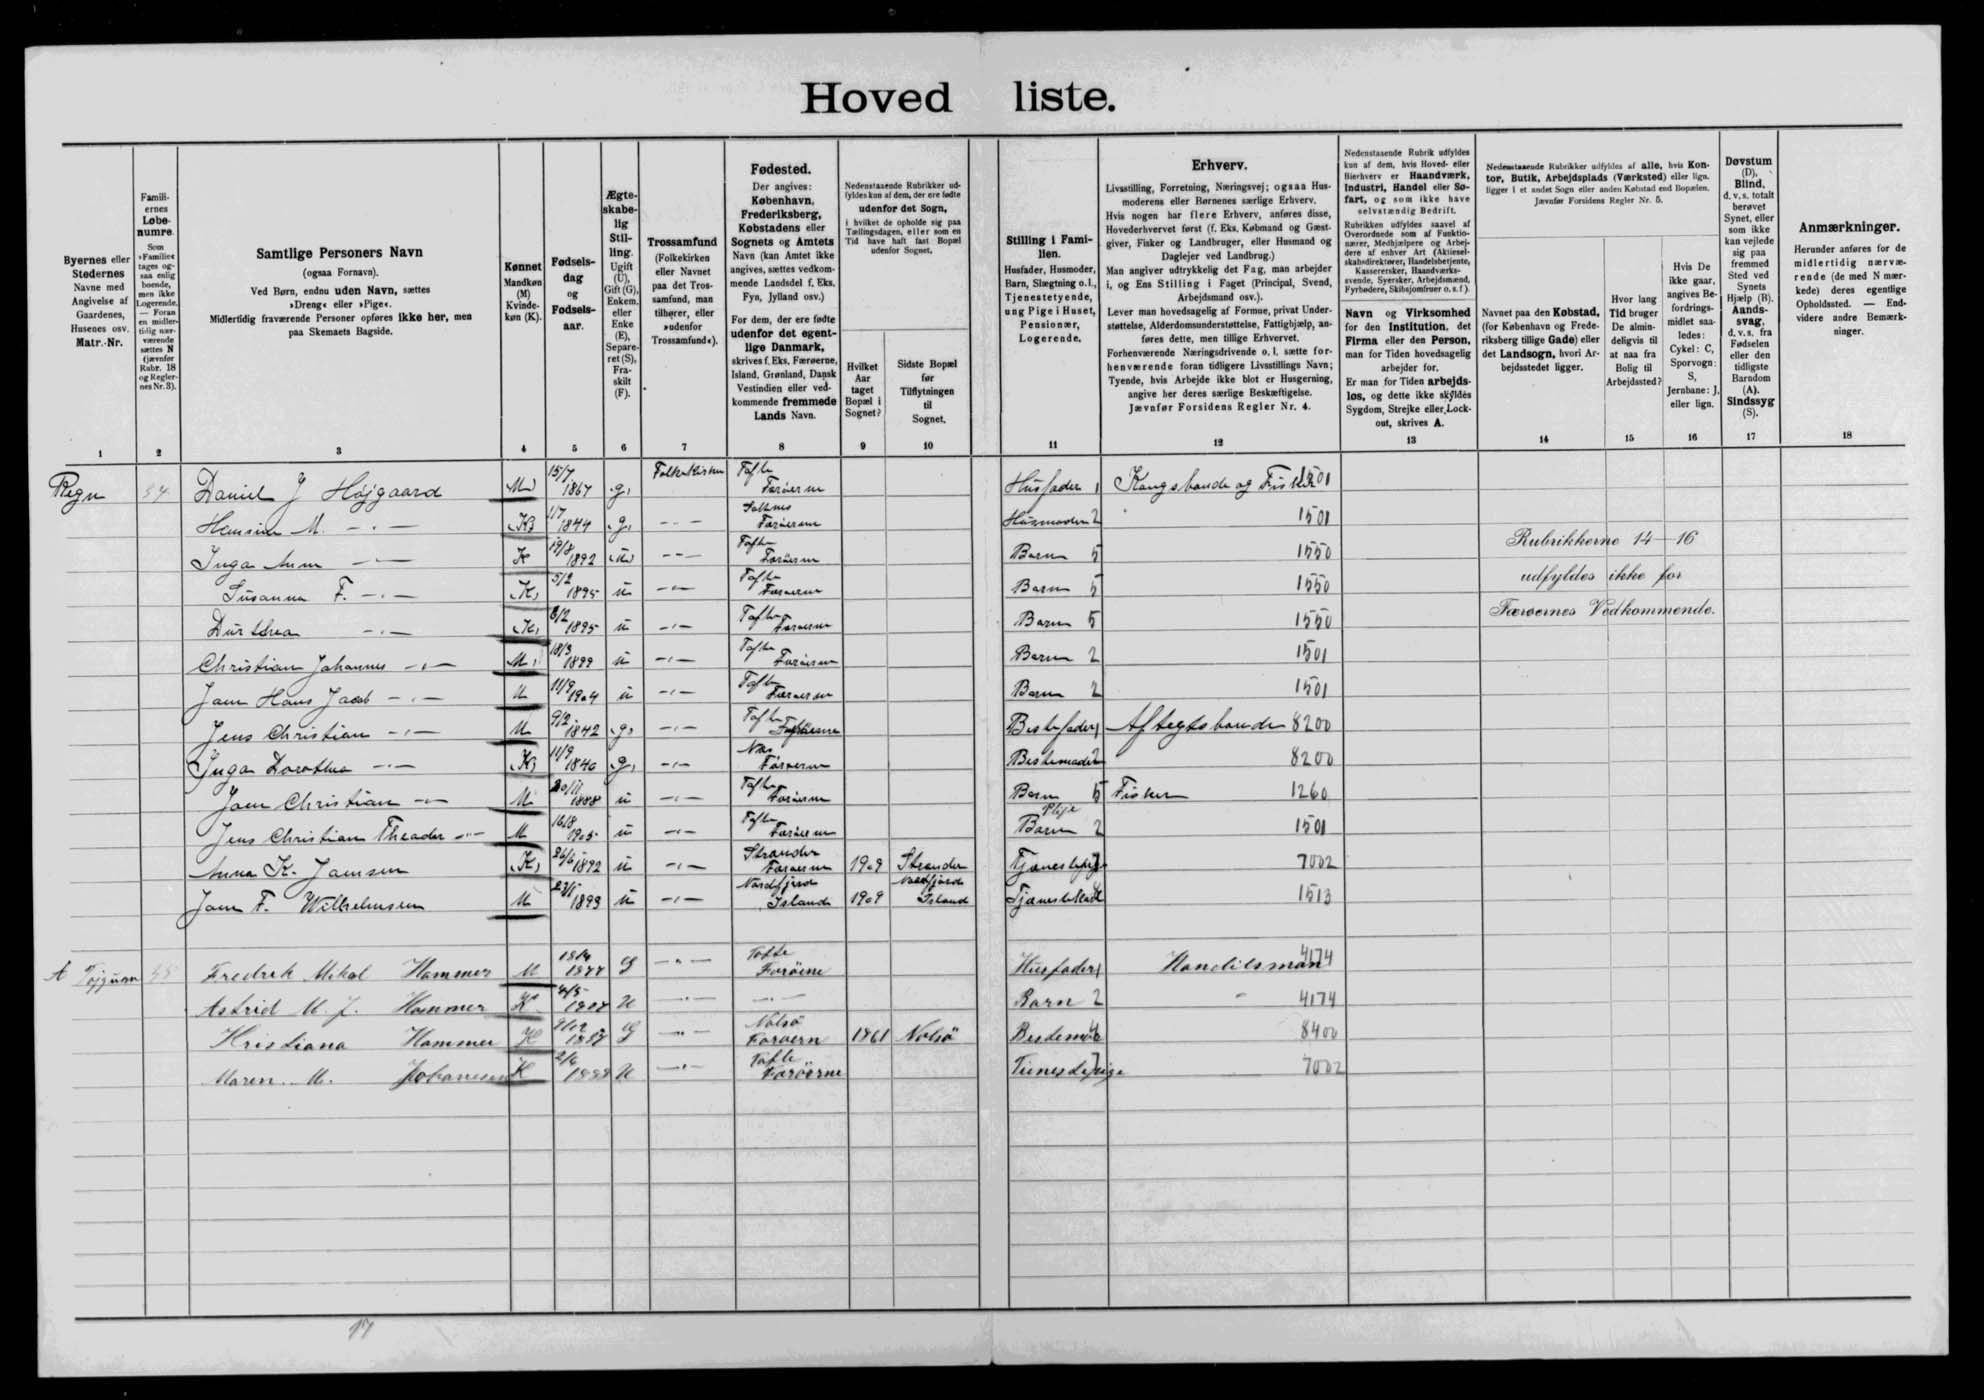 Hovedliste.
Byernes eller Stedernes Navne med Angivelse af Gaardenes, Husenes osv. Matr.-Nr.
Familiernes Løbenumre. Som »Familie« tages ogsaa enlig boende, men ikke Logerende. — Foran en midlertidig nærværende sættes N (jævnfør Rubr. 18 og Reglernes Nr. 3).
Samtlige Personers Navn (ogsaa Fornavn). Ved Børn, endnu uden Navn, sættes »Dreng« eller »Pige«. Midlertidig fraværende Personer opføres ikke her, men paa Skemaets Bagside.
Kønnet Mandkøn (M) Kvindekøn (K).
Fødselsdag og Fødselsaar.
Ægteskabelig Stilling. Ugift (U), Gift (G), Enkem. eller Enke (E), Separeret (S), Fraskilt (F).
Trossamfund (Folkekirken eller Navnet paa det Trossamfund, man tilhører, eller »udenfor Trossamfund«).
Fødested. Der angives: København, Frederiksberg, Købstadens eller Sognets og Amtets Navn (kan Amtet ikke angives, sættes vedkommende Landsdel f. Eks. Fyn, Jylland osv.) For dem, der ere fødte udenfor det egentlige Danmark, skrives f. Eks. Færøerne, Island, Grønland, Dansk Vestindien eller vedkommende fremmede Lands Navn.
Nedenstaaende Rubrikker udfyldes kun af dem, der ere fødte udenfor det Sogn, i hvilket de opholde sig paa Tællingsdagen, eller som en Tid have haft fast Bopæl udenfor Sognet.
Hvilket Aar taget Bopæl i Sognet?
Sidste Bopæl før Tilflytningen til Sognet.
Stilling i Familien. Husfader, Husmoder, Barn, Slægtning o. l., Tjenestetyende, ung Pige i Huset, Pensionær, Logerende.
Erhverv. Livsstilling, Forretning, Næringsvej; ogsaa Husmoderens eller Børnenes særlige Erhverv. Hvis nogen har flere Erhverv, anføres disse, Hovederhvervet først (f. Eks. Købmand og Gæstgiver, Fisker og Landbruger, eller Husmand og Daglejer ved Landbrug.) Man angiver udtrykkelig det Fag, man arbejder i, og Ens Stilling i Faget (Principal, Svend, Arbejdsmand osv.). Lever man hovedsagelig af Formue, privat Understøttelse, Alderdomsunderstøttelse, Fattighjælp, anføres dette, men tillige Erhvervet. Forhenværende Næringsdrivende o. l. sætte forhenværende foran tidligere Livsstillings Navn; Tyende, hvis Arbejde ikke blot er Husgerning, angive her deres særlige Beskæftigelse. Jævnfør Forsidens Regler Nr. 4.
Nedenstaaende Rubrik udfyldes kun af dem, hvis Hoved- eller Bierhverv er Haandværk, Industri, Handel eller Søfart, og som ikke have selvstændig Bedrift.
Rubrikken udfyldes saavel af Overordnede som af Funktionærer, Medhjælpere og Arbejdere af enhver Art (Aktieselskabsdirektører, Handelsbetjente, Kasserersker, Haandværkssvende, Syersker, Arbejdsmænd, Fyrbødere, Skibsjomfruer o. s. f.).
Navn og Virksomhed for den Institution, det Firma eller den Person, man for Tiden hovedsagelig arbejder for. Er man for Tiden arbejdsløs, og dette ikke skyldes Sygdom, Strejke eller Lockout, skrives A.
Nedenstaaende Rubrikker udfyldes af alle, hvis Kontor, Butik, Arbejdsplads (Værksted) eller lign. ligger i et andet Sogn eller anden Købstad end Bopælen. Jævnfør Forsidens Regler Nr. 5.
Navnet paa den Købstad, (for København og Frederiksberg tillige Gade) eller det Landsogn, hvori Arbejdsstedet ligger.
Hvor lang Tid bruger De almindeligvis til at naa fra Bolig til Arbejdssted?
Hvis De ikke gaar, angives Befordringsmidlet saaledes: Cykel: C, Sporvogn: S, Jernbane: J, eller lign.
Døvstum (D), Blind, d. v. s. totalt berøvet Synet, eller som ikke kan vejlede sig paa fremmed Sted ved Synets Hjælp (B). Aandssvag, d. v. s. fra Fødselen eller den tidligste Barndom (A). Sindssyg (S).
Anmærkninger. Herunder anføres for de midlertidig nærværende (de med N mærkede) deres egentlige Opholdssted. — Endvidere andre Bemærkninger.
1 2 3 4 5 6 7 8 9 10 11 12 13 14 15 16 17 18
Daniel J Højgaard M 15/7 1867 g Folkekirken Tofte Færøerne Husfader 1 Kongsbonde og Fisker 1501
M. K 1844 g Færøerne Husmoder 2 1501
Inga K 19/8 1892 u Tofte Færøerne Barn 5 1550
Susanna F. K 5/2 1895 u Tofte Færøerne Barn 5 1550
K 8/2 1895 u Tofte Færøerne Barn 5 1550
Christian Johannes M 18/3 1899 u Tofte Færøerne Barn 2 1501
Hans Jacob M 11/9 1904 u Tofte Færøerne Barn 2 1501
Jens Christian M 9/2 1842 g Tofte Færøerne Bestefader 1 Aftegtsbonde 8200
Inga Dorothea K 11/9 g Næs Færøerne Bestemoder 2 8200
Christian M 20/11 1888 u Tofte Færøerne Barn 5 Fisker 1260
Jens Christian M 16/8 1905 u Tofte Færøerne Pleje Barn 2 1501
Anna K. K 26/6 1892 u Strender Færøerne 1909 Strender Tjenestepige 7002
F. Wilhelmsen M 1893 u Nordfjord Island 1909 Nordfjord Island 1513
Rubrikkerne 14—16
udfyldes ikke for
Færøernes Vedkommende.
Fredrek Mikal Hammer M G Tofte Færöerne Husfader 1 Handilsman 4174
Astrid M. J. Hammer K U Barn 2 4174
Kristiana Hammer K G Nolsö 1861 Nolsö 8400
Maren M. Johanesen K U Tofte Færöerne 7002
17